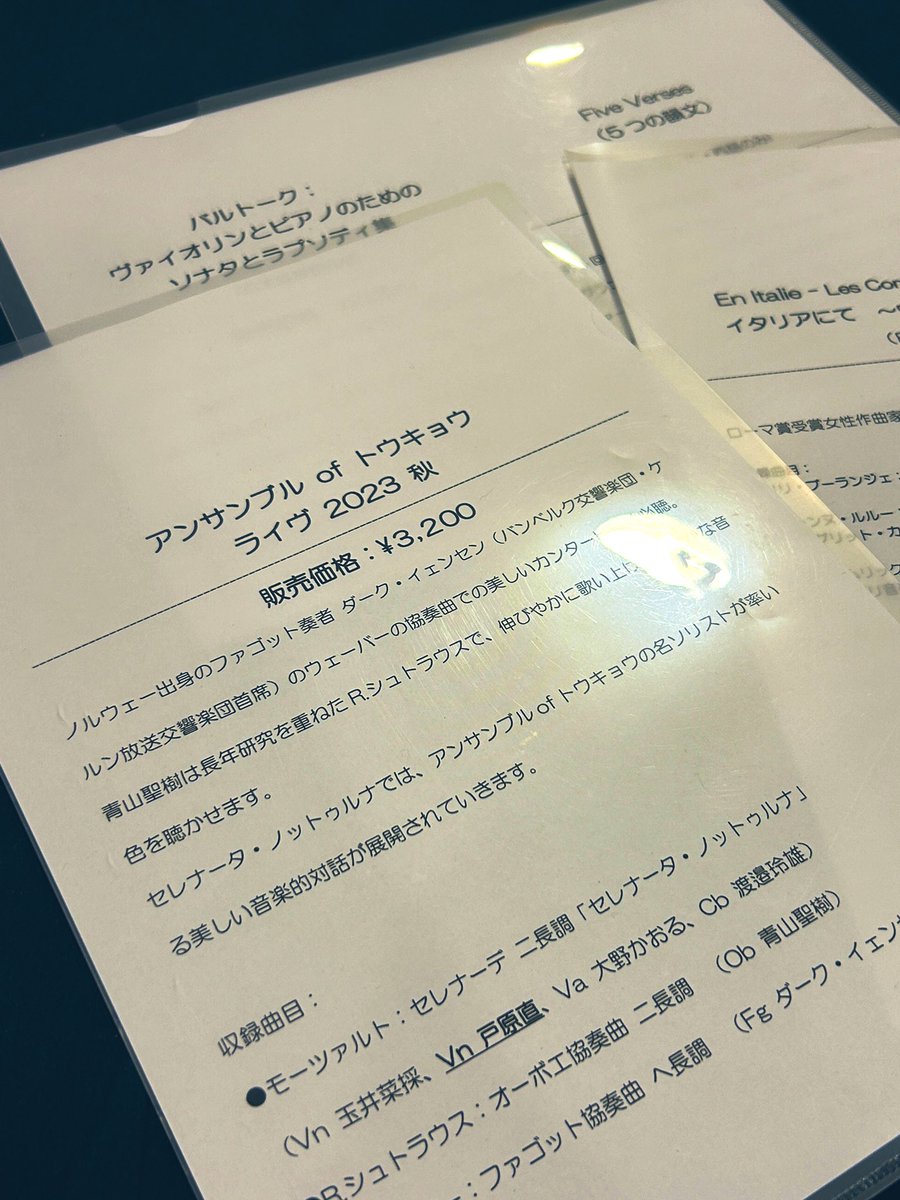 Five Verses
(5つの韻文)
バルトーク：
ヴァイオリンとピアノのための
ソナタとラプソディ集
En Italie - Les Con
イタリアにて ～
ローマ賞受賞女性作曲家
曲目：
ブーランジェ：
ルルー
アンサンブル of トウキョウ
ライヴ 2023 秋
販売価格：¥3,200
ノルウェー出身のファゴット奏者 ダーク・イェンセン（バンベルク交響楽団・ケ
ルン放送交響楽団首席）のウェーバーの協奏曲での美しいカンター 必聴。
青山聖樹は長年研究を重ねたR.シュトラウスで、伸びやかに歌い上 な音
色を聴かせます。
セレナータ・ノットゥルナでは、アンサンブル of トウキョウの名ソリストが率い
る美しい音楽的対話が展開されていきます。
収録曲目：
●モーツァルト：セレナーデ ニ長調「セレナータ・ノットゥルナ」
（Vn 玉井菜採、Vn 戸原直、Va 大野かおる、Cb 渡邉玲雄）
●R.シュトラウス：オーボエ協奏曲 ニ長調 （Ob 青山聖樹）
：ファゴット協奏曲 ヘ長調 （Fg ダーク・イェンセ